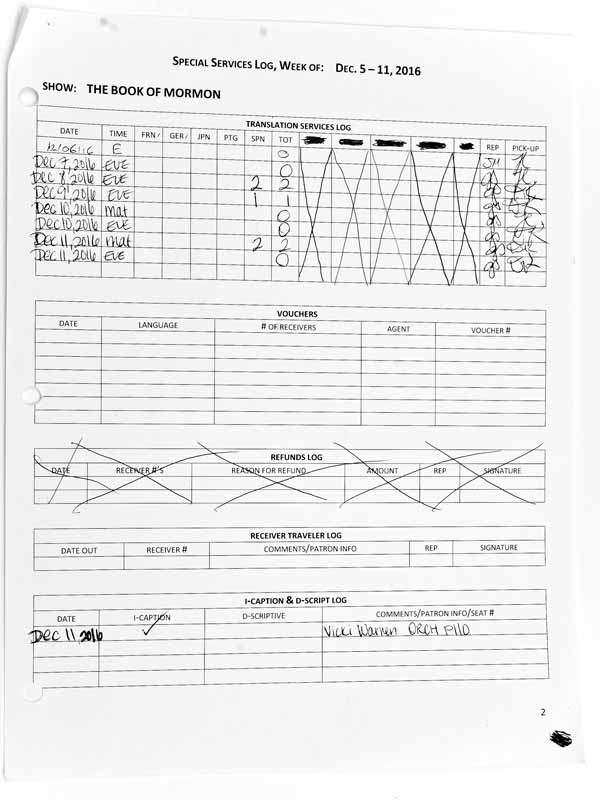 SPECIAL SERVICES LOG, WEEK OF: DEC. 5 – 11, 2016
SHOW: THE BOOK OF MORMON
TRANSLATION SERVICES LOG
DATE TIME FRN/ GER/ JPN PTG SPN TOT REP PICK-UP
12/06/16 E 0
Dec 7, 2016 EVE 0 JM
Dec 8, 2016 EVE 2 2
Dec 9, 2016 EVE 1 1
Dec 10, 2016 Mat 0
Dec 10, 2016 EVE 0
Dec 11, 2016 Mat 2 2
Dec 11, 2016 EVE 0
VOUCHERS
DATE LANGUAGE # OF RECEIVERS AGENT VOUCHER #
REFUNDS LOG
DATE RECEIVER #'S REASON FOR REFUND AMOUNT REP SIGNATURE
RECEIVER TRAVELER LOG
DATE OUT RECEIVER # COMMENTS/PATRON INFO REP SIGNATURE
I-CAPTION & D-SCRIPT LOG
DATE I-CAPTION D-SCRIPTIVE COMMENTS/PATRON INFO/SEAT #
Dec 11, 2016 ✓ Vicki Warren ORCH P110
2